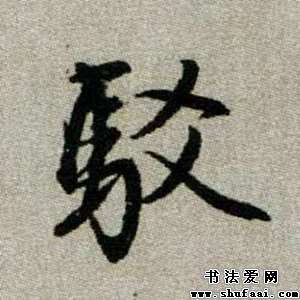 駁
书法爱网
www.shufaai.com